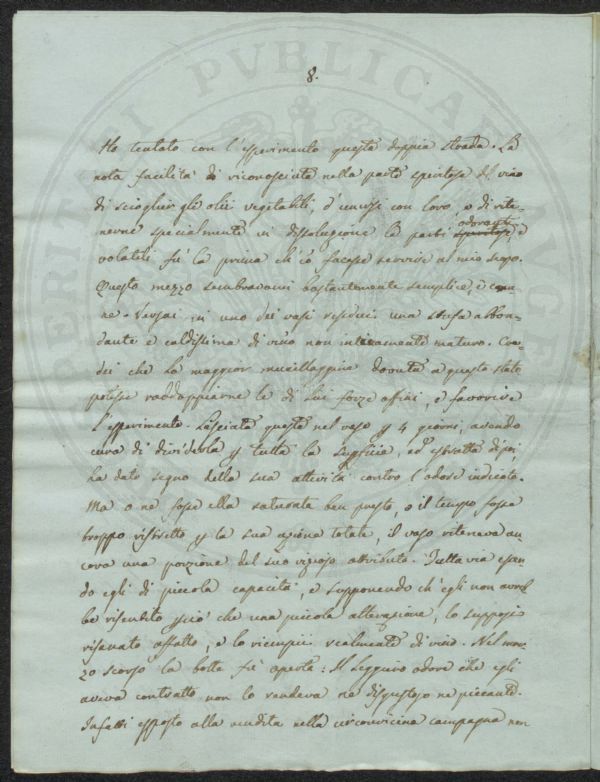 8.
Ho tentato con l'esperimento questa doppia strada. La
nota facilità di riconosciuta nella parte spiritosa del vino
di scioglier gli olii vegetabili, d'unirsi con loro, e di rite-
nerne specialmente in dissoluzione le parti spiritose, odoranti e
volatili fu la prima ch'io facessi servire al mio scopo.
Questo mezzo sembravami bastantemente semplice, e comu-
ne. Versai in uno dei vasi residui una stufa abbon-
dante e caldissima di vino non interamente maturo. Cre-
dei che la maggior mucillaggine dovuta a questo stato
potesse raddoppiarne le di lui forze affini, e favorire
l'esperimento. Lasciata questa nel vaso p 4 giorni, avendo
cura di dividerla p tutta la superficie, ed estratta di poi,
ha dato segno della sua attività contro l'odore indicato.
Ma o ne fosse ella saturata ben presto, o il tempo fosse
troppo ristretto p la sua azione totale, il vaso riteneva an
cora una porzione del suo vizioso attributo. Tuttavia essen
do egli di piccola capacità, e supponendo ch'egli non avreb
be risentito perciò che una piccola alterazione, lo supposi
risanato affatto, e lo riempii realmente di vino. Nel mar-
zo scorso la botte fu aperta: Il leggiero odore che egli
aveva contratto non lo rendeva ne disgustoso ne piccante.
Infatti esposto alla vendita nella circonvicina campagna non
PERITATI PUBLICAE AUGE